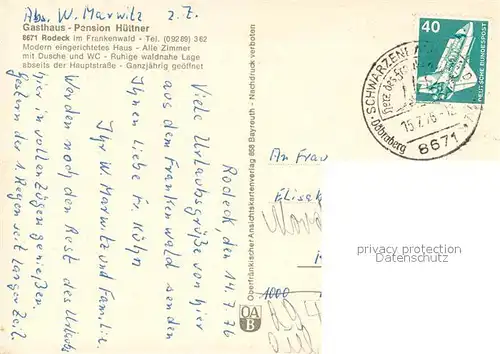 Abs. W. Marwitz z. Z.
Gasthaus - Pension Hüttner
8671 Rodeck im Frankenwald - Tel. (09289) 362
Modern eingerichtetes Haus - Alle Zimmer
mit Dusche und WC - Ruhige waldnahe Lage
abseits der Hauptstraße - Ganzjährig geöffnet
Rodeck, den 14.7.76
Viele Urlaubsgrüße von hier
aus dem Frankenwald senden
Ihnen liebe Fr. Kühn
Ihr W. Marwitz und Familie.
Werden noch den Rest des Urlaubs
hier in vollen Zügen genießen.
Gestern der 1. Regen seit langer Zeit.
Oberfränkischer Ansichtskartenverlag 858 Bayreuth - Nachdruck verboten
OA
B
40
DEUTSCHE BUNDESPOST
SCHWARZENBACH
15.7.76-12
Döbraberg
8671
An Frau
1000
privacy protection
Datenschutz